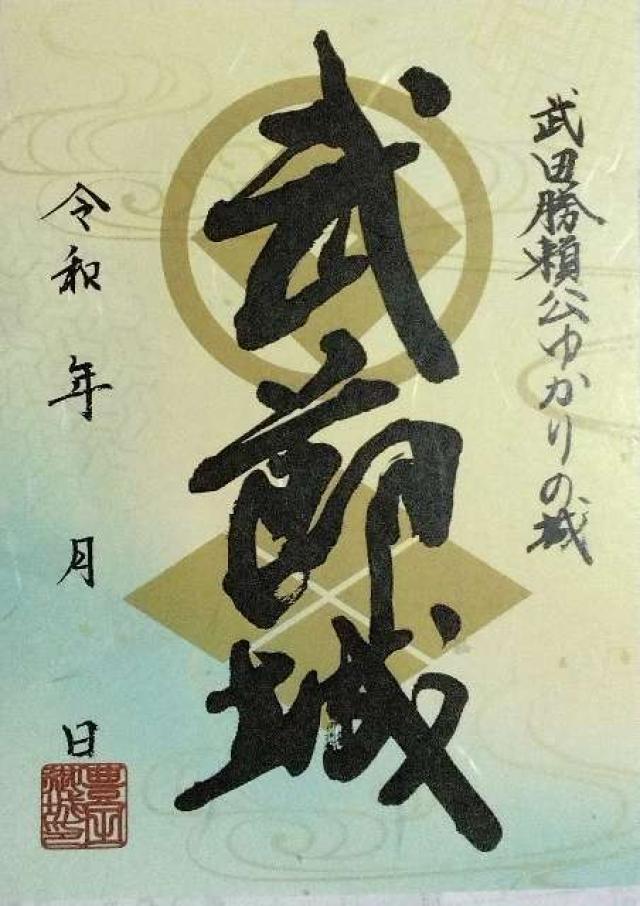 武田勝頼公ゆかりの城
武節城
令和 年 月 日